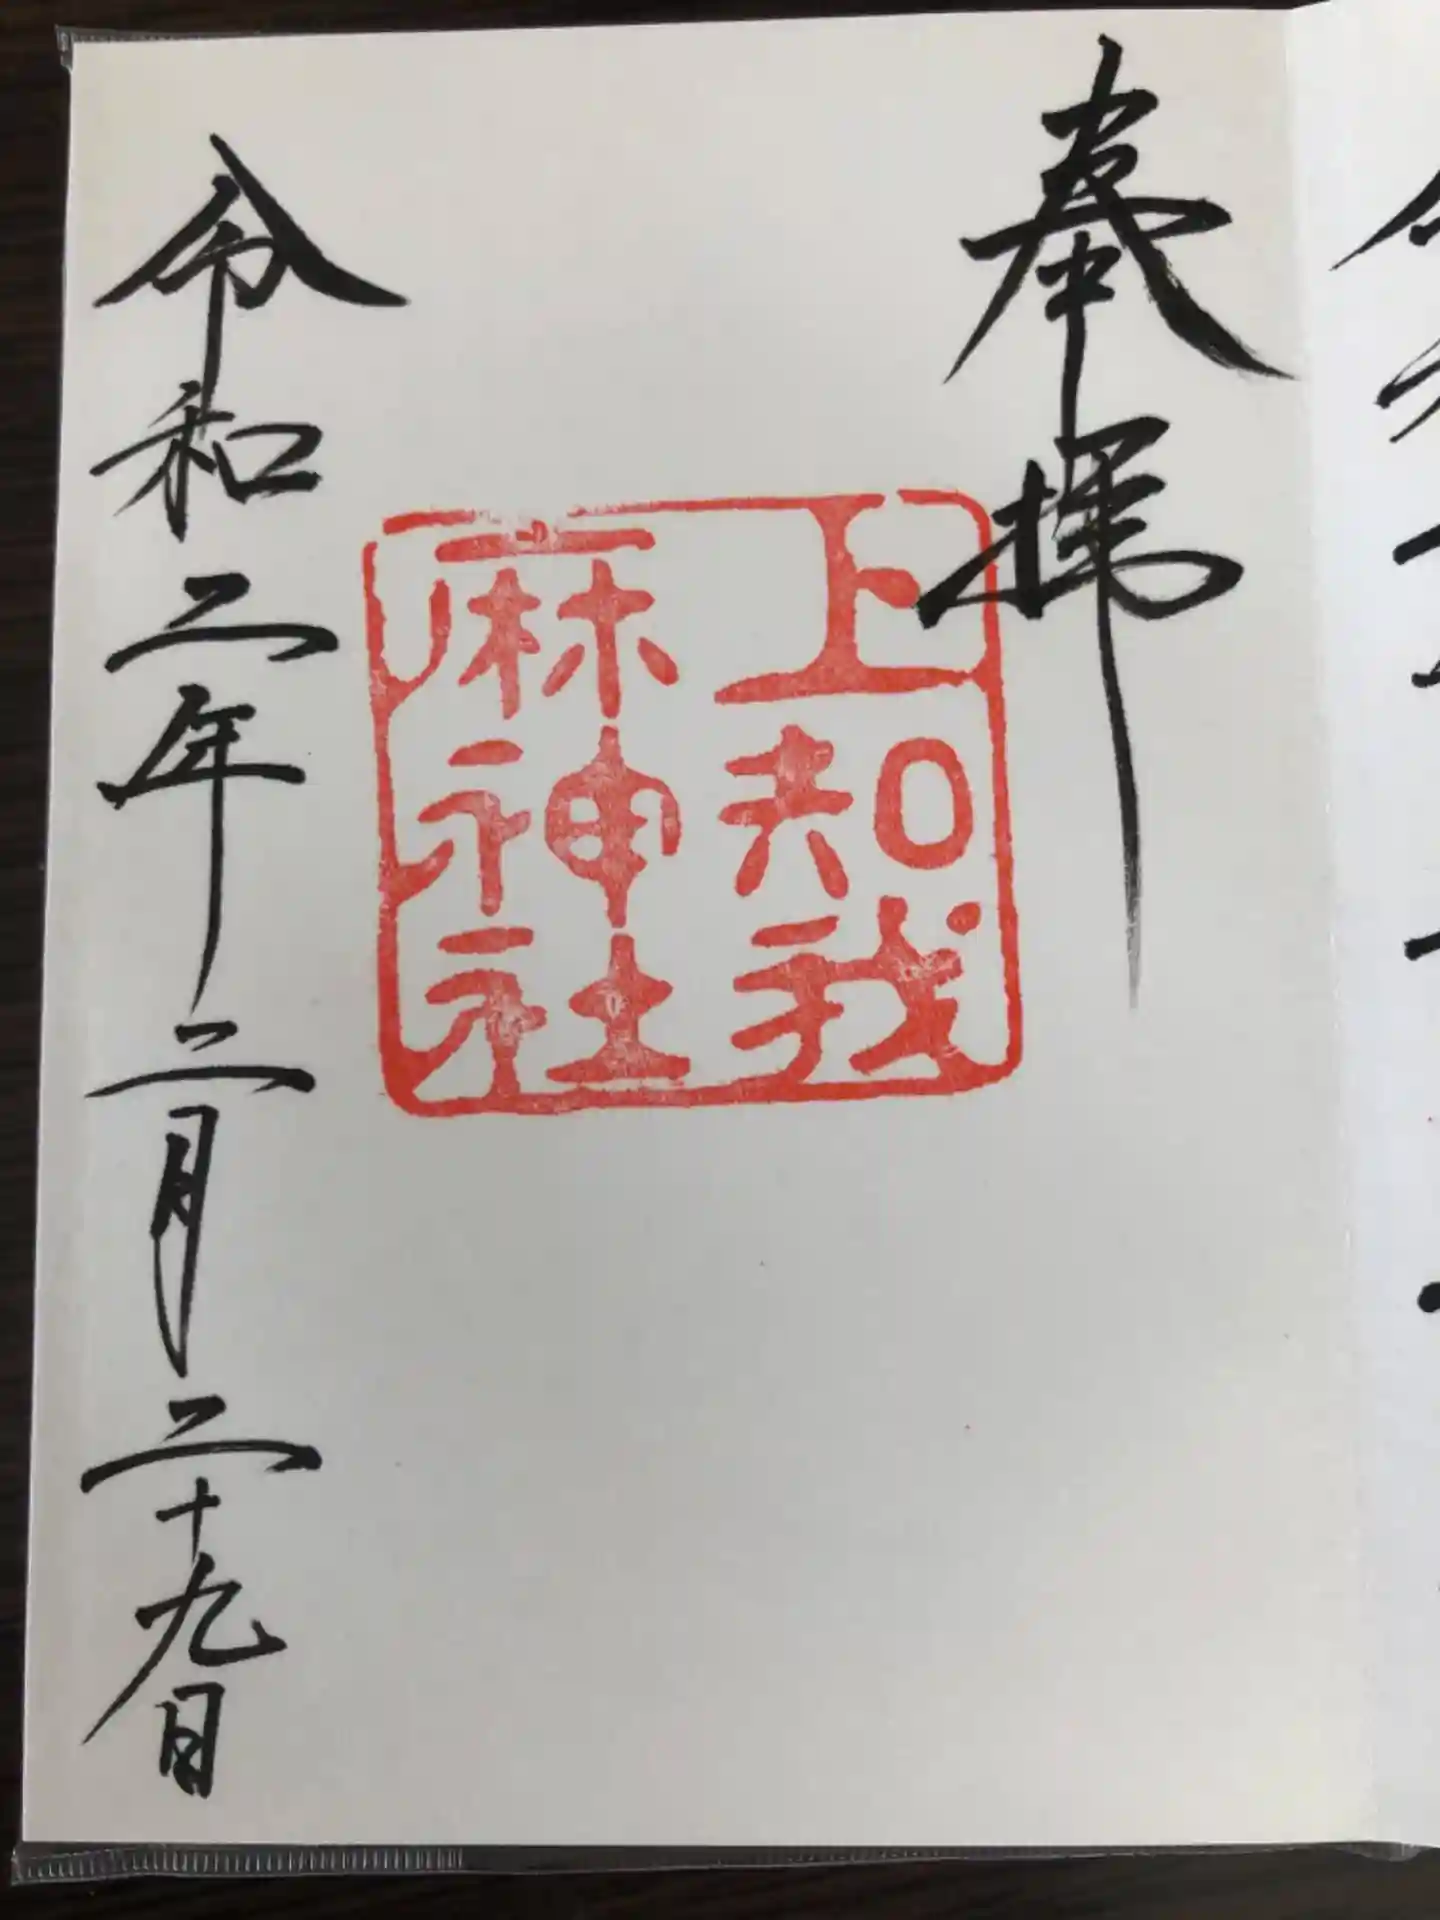 奉拝
上知我
麻神社
令和二年二月二十九日